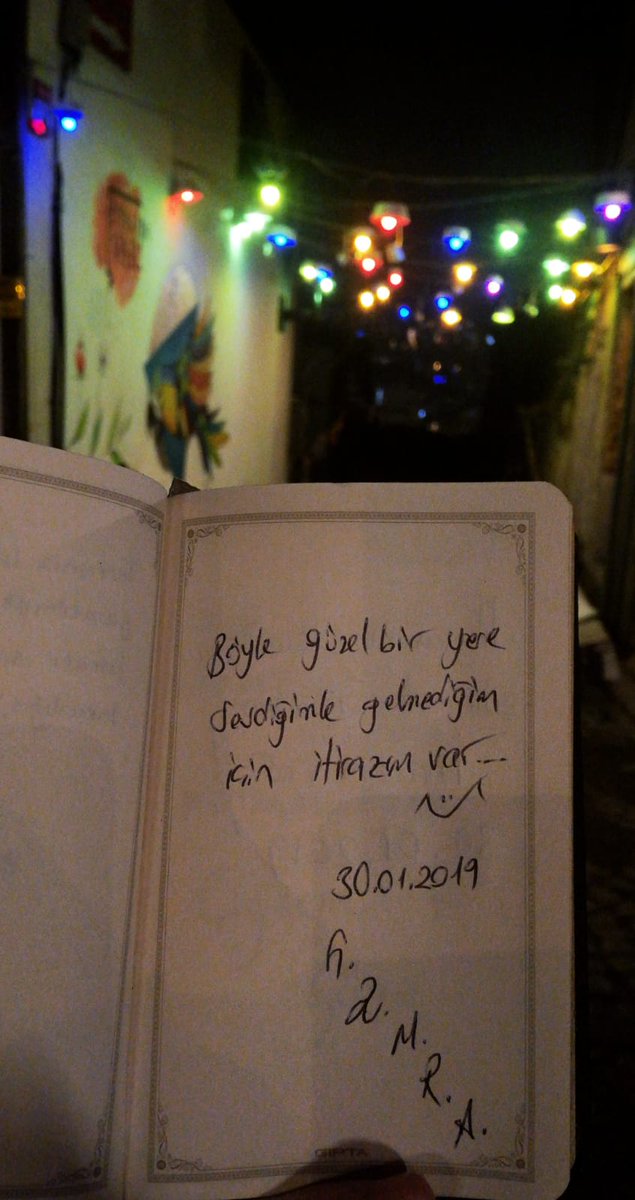 Böyle güzel bir yere
Sevdiğimle gelmediğim
için itirazım var....
30.01.2019
M.
R.
A.
GIPTA